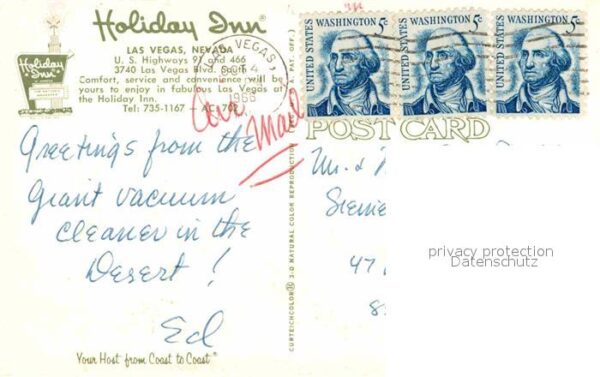 Holiday Inn®
LAS VEGAS, NEVADA
U. S. Highways 91 and 466
3740 Las Vegas Blvd. South
Comfort, service and convenience will be
yours to enjoy in fabulous Las Vegas at
the Holiday Inn.
Tel: 735-1167 AC: 702
Holiday Inn
VEGAS,
4
1966
Air Mail
UNITED STATES
WASHINGTON 5c
UNITED STATES
WASHINGTON 5c
UNITED STATES
WASHINGTON 5c
POST CARD
Greetings from the
giant vacuum
cleaner in the
Desert!
Ed
Your Host from Coast to Coast®
CURTEICHCOLOR® 3-D NATURAL COLOR REPRODUCTION
PAT. OFF.)
Mr. &
Sieme
47
8
privacy protection
Datenschutz